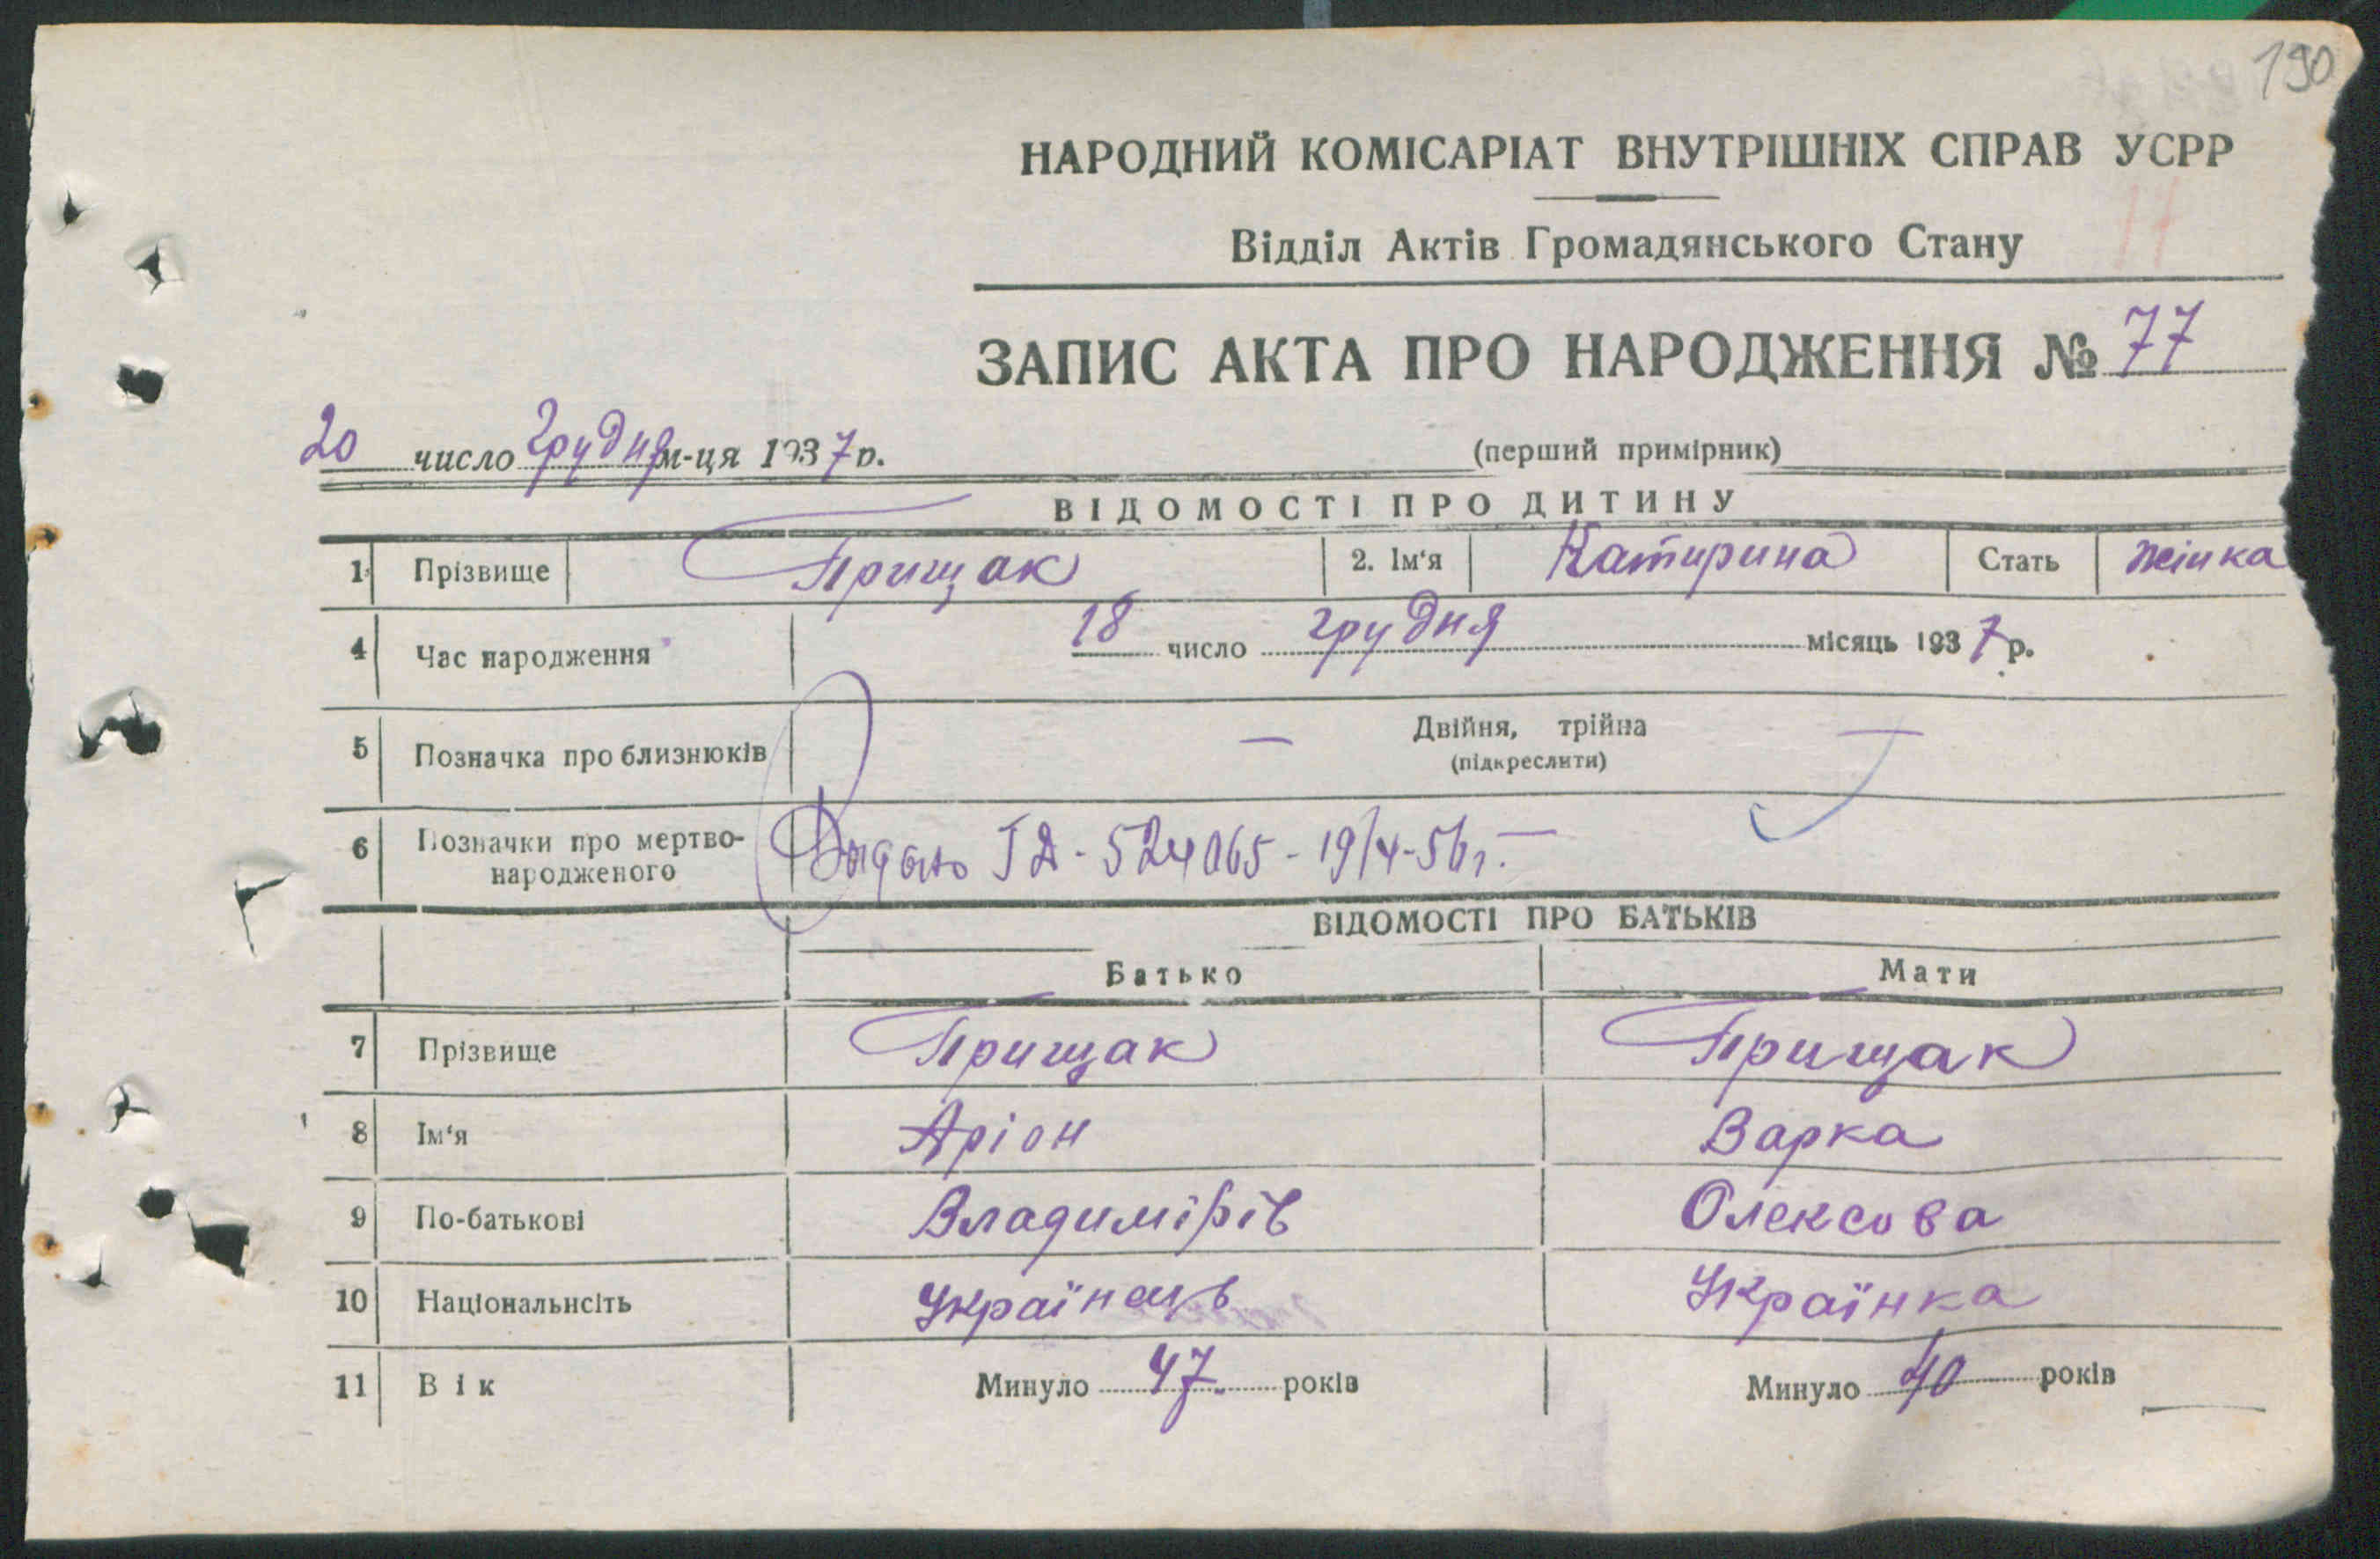 190
НАРОДНИЙ КОМІСАРІАТ ВНУТРІШНІХ СПРАВ УСРР
Відділ Актів Громадянського Стану
ЗАПИС АКТА ПРО НАРОДЖЕННЯ № 77
20 число грудня м-ця 1937 р.
(перший примірник)
ВІДОМОСТІ ПРО ДИТИНУ
1 Прізвище Прищак 2. Ім'я Катирина Стать жінка
4 Час народження 18 число грудня місяць 1937 р.
5 Позначка про близнюків — Двійня, трійна
(підкреслити)
6 Позначки про мертво-
народженого
Видано 524065 - 19/4-56 г.
ВІДОМОСТІ ПРО БАТЬКІВ
Батько Мати
7 Прізвище Прищак Прищак
8 Ім'я Аріон Варка
9 По-батькові Владимірів Олексова
10 Національнсіть Українець Українка
11 Вік Минуло 47 років Минуло 40 років